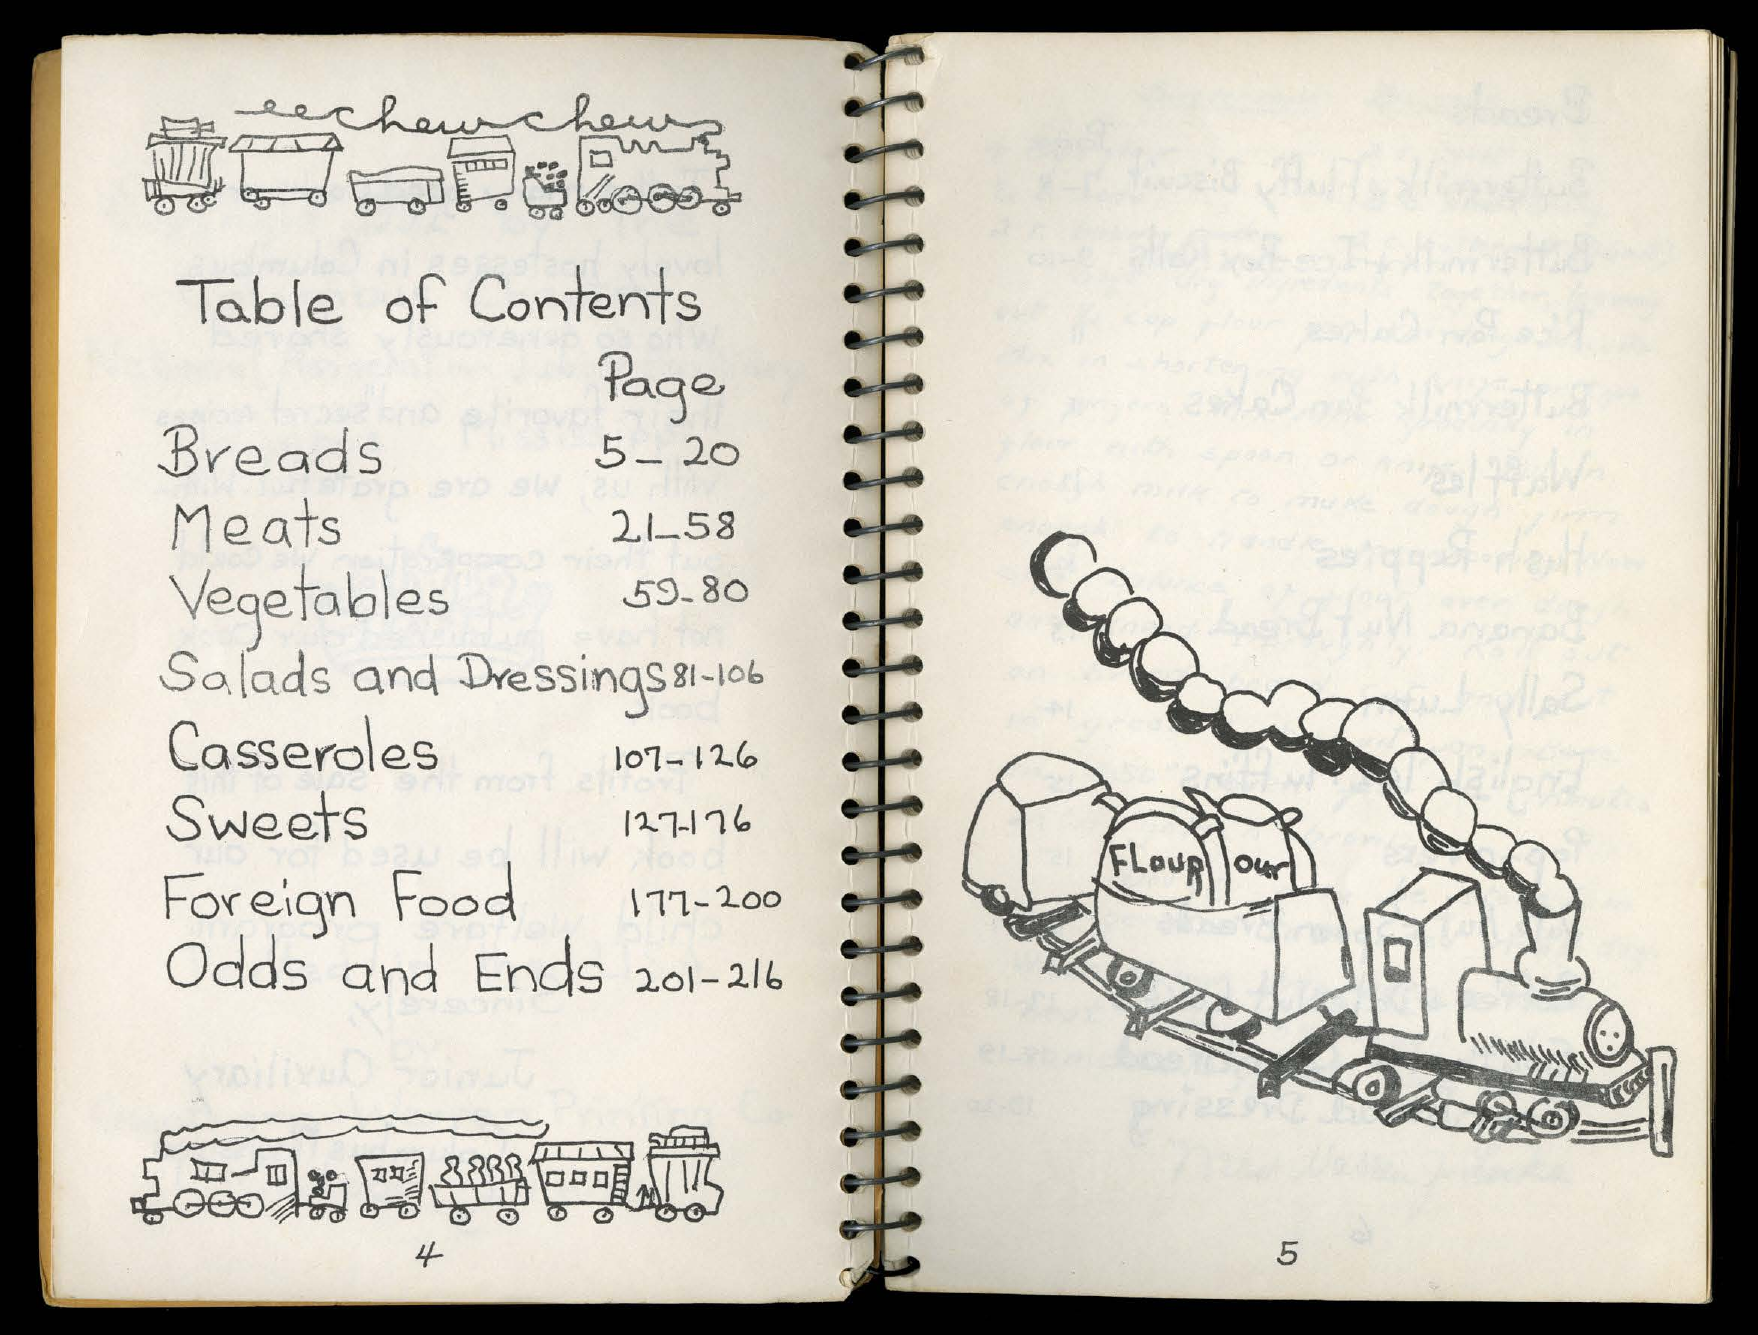 ee chew chew
Table of Contents
Page
Breads 5-20
Meats 21-58
Vegetables 59-80
Salads and Dressings 81-106
Casseroles 107-126
Sweets 127-176
Foreign Food 177-200
Odds and Ends 201-216
4
FLOUR
OUR
5